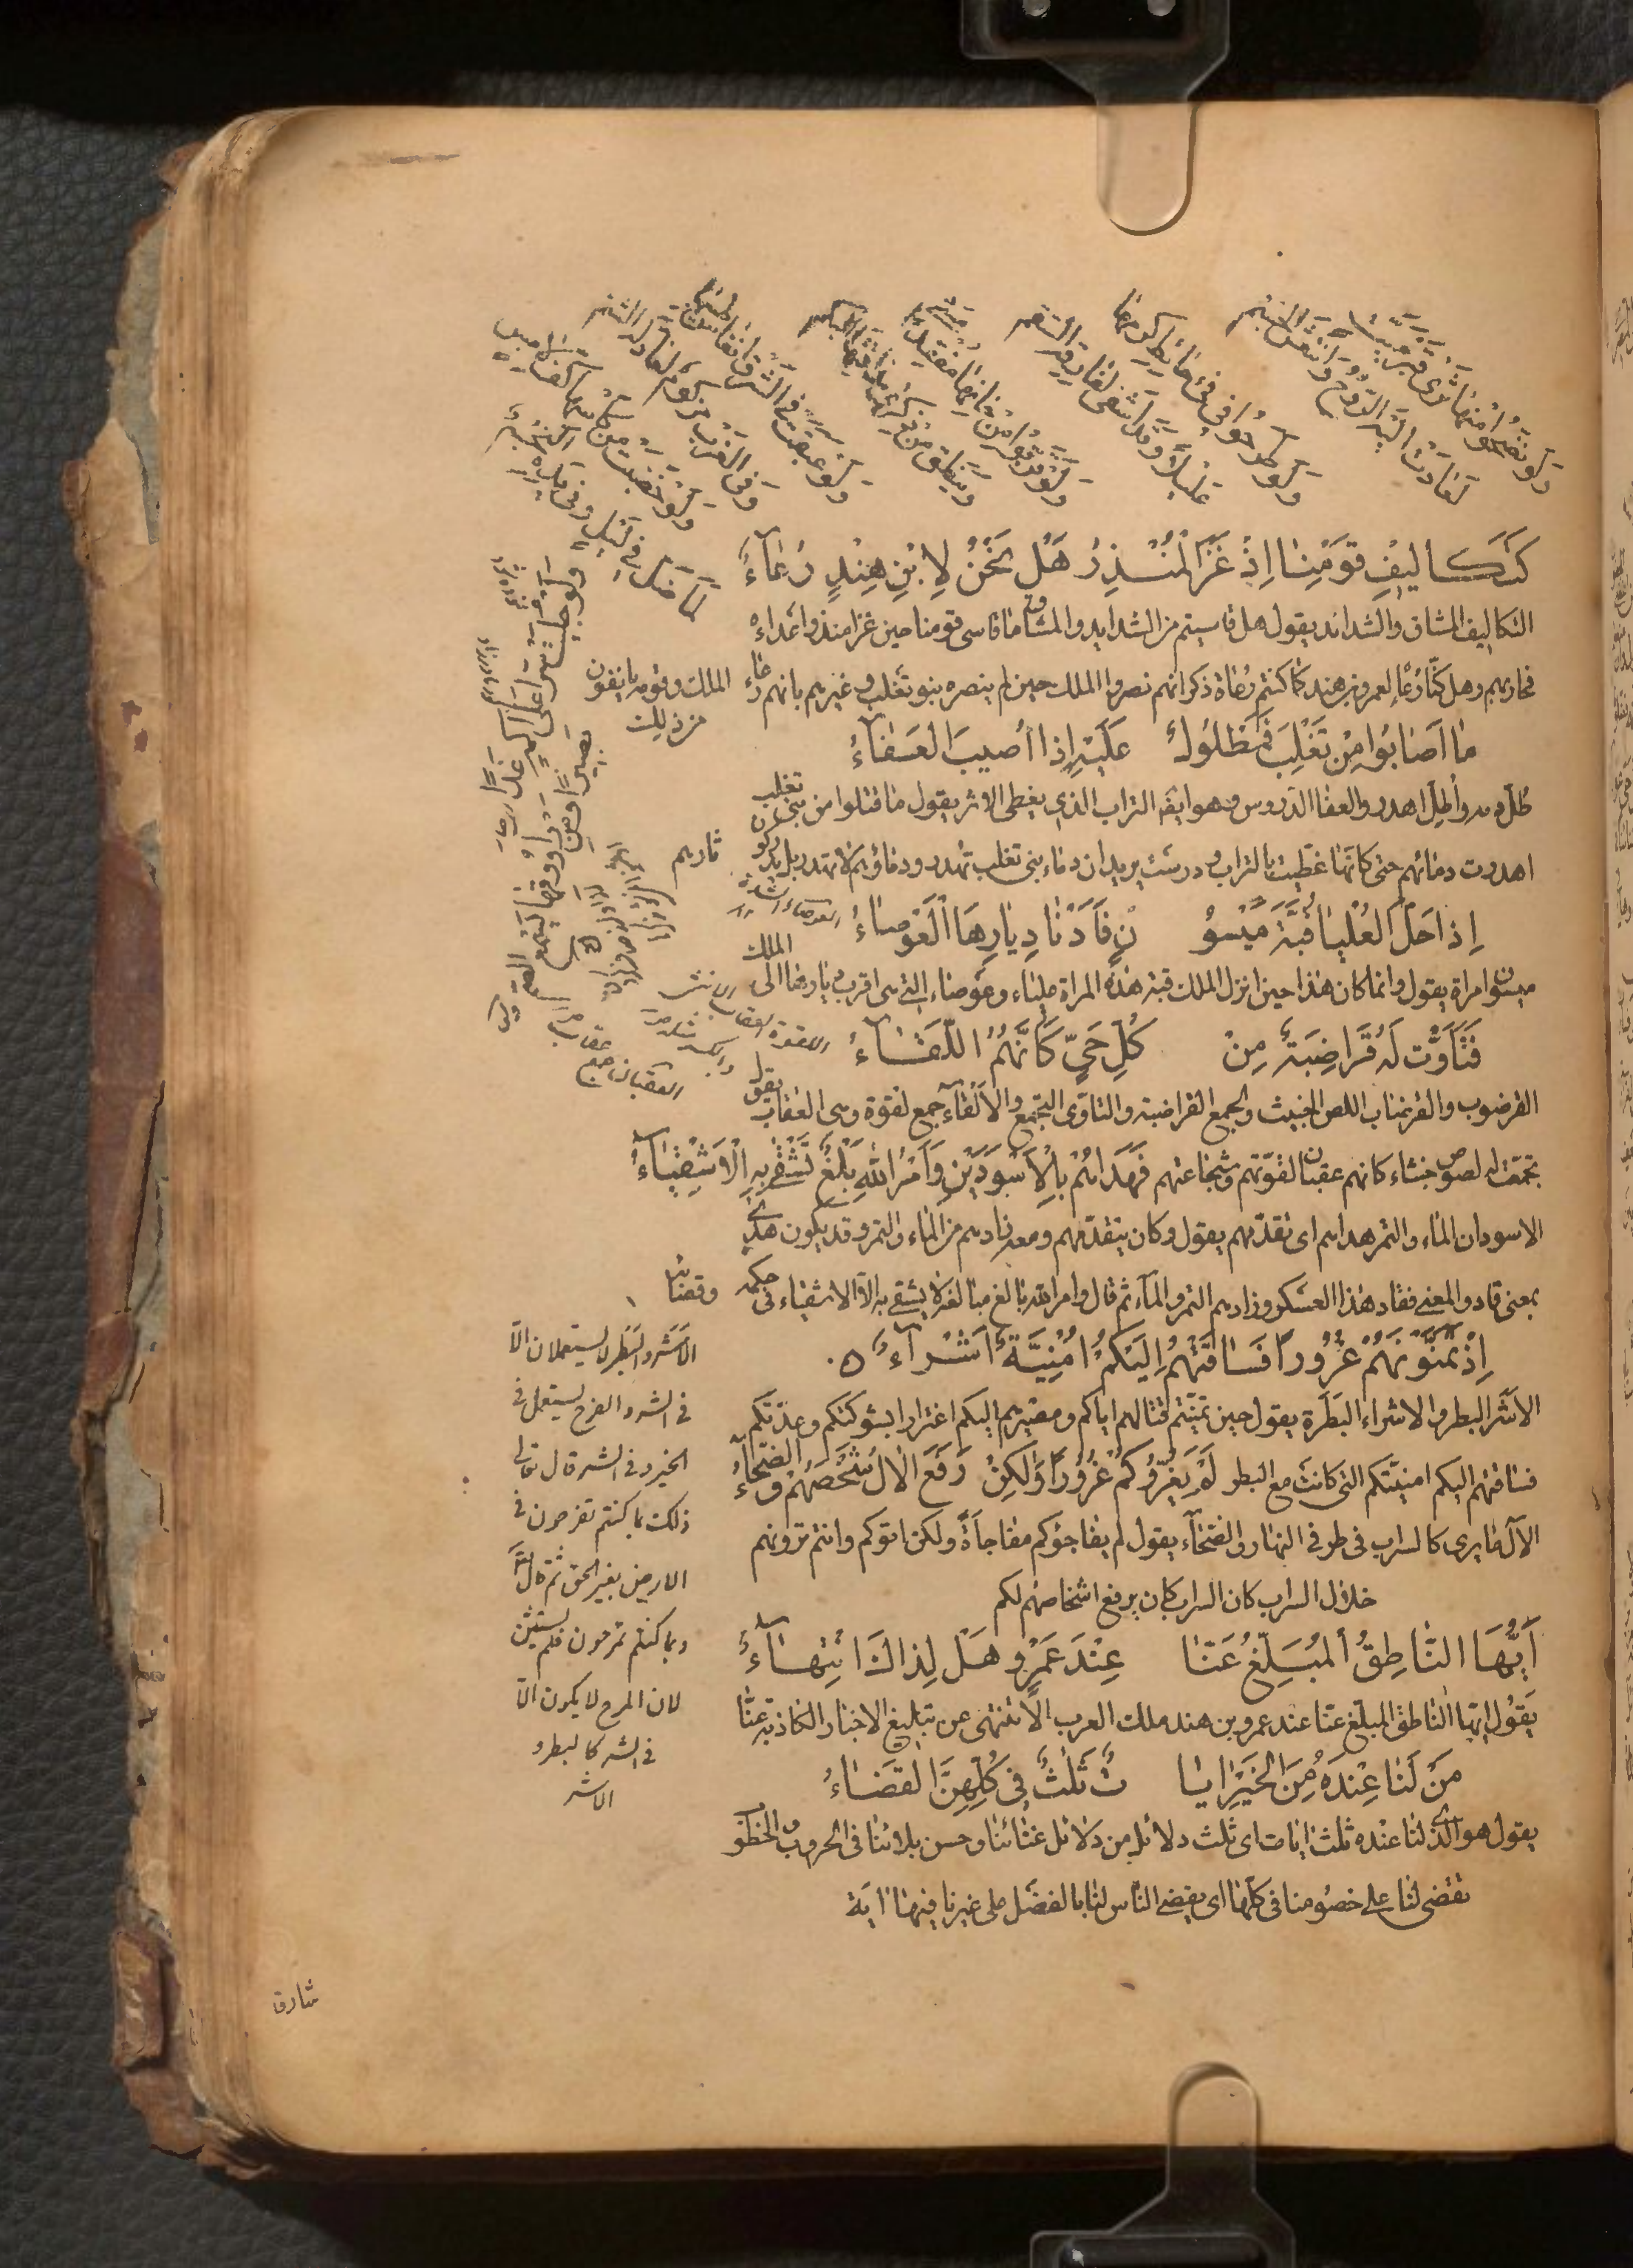 ولو نضحوا منها ثرى قبر ميت
لعادت اليه الروح وانتعش الجسم
ولو طرحوا في فيء حائط كرمها
عليلا وقد اشفى لفارقه السقم
ولو قربوا من حانها مقعدا مشى
وينطق من ذكرى مذاقتها البكم
ولو عبقت في الشرق انفاس طيبها
وفي الغرب مزكوم لعاد له الشم
ولو خضبت من كاسها كف لامس
لما ضل في ليل وفي يده النجم
ولو جليت سرا على اكمه غدا
بصيرا ومن راووقها يسمع الصم
كَتَكاليفِ قَومِنا اِذْ غَزَا الْمُنْذِرُ هَل نَحْنُ لِابْنِ هِنْدٍ رُعَآءُ
التكاليف المشاق والشدائد يقول هل قاسيتم من الشدايد والمشاق ما قاسى قومنا حين غزا منذر اعداءه
فحاربهم وهل كنّا رُعاء لعمرو بن هند كما كنتم رعاة ذكر انهم نصروا الملك حين لم ينصره بنو تغلب وغيرهم بانهم رعاء الملك وقومه يانفون
من ذلك
مَا اَصَابُوا مِنْ تَغْلِبَ فَمَطْلُولٌ عَلَيْهِ اِذا اُصيبَ العَفَآءُ
طُلّ دمه وأُطِلّ اهدر والعفا الدروس وهو ايضا التراب الذي يغطى الاثر يقول ما قتلوا من بنى تغلب
اهدرت دمائهم حتى كانّها غطّيت بالتراب ودرست يريد ان دماء بنى تغلب تهدر ودماؤهم لا تهدر بل يدركون ثارهم
اِذ احَلَّ العُلْيا قُبَّةَ مَيْسُو نَ فَاَدْنَا دِيَارِهَا الْعَوْصَاءُ
ميسون امراة يقول وانما كان هذا حين انزل الملك قبة هذه المراة علياء وعوصاء التى هى اقرب ديارها الى الملك
فَتَاَوَّت لَهُ قَراضِبَةٌ مِنْ كُلِّ حَيٍّ كَاَنَّهُمْ اَلْقَآءُ
القرضوب والقرضاب اللص الخبيث والجمع القراضبة والتاوّى التجمع والالقاء جمع لقوة وهى العقاب يقول
تجمّعت له لصوص خبثاء كانهم عقبان لقوّتهم وشجاعتهم فَهَداهُمْ بِالاَسْوَدَيْنِ وَاَمْرُ اللهِ بَلْغٌ تَشْقٰى بِهِ الْاَشْقِيَآءُ
الاسودان الماء والتمر هداهم اى تقدّمهم يقول وكان يتقدّمهم ومعه زادهم من الماء والتمر وقد يكون هدى
بمعنى قاد والمعنى فقاد هذا العسكر وزادهم التمر والمآء ثم قال وامر الله بالغ مبالغه لا يشقى به الا الاشقياء فى حكمه وقضائه
اِذْ تَمَنَّوْنَهُمْ غُرُورًا فَسَاقَتْهُمْ اِلَيْكُمْ اُمْنِيَّةٌ اَشْرَآءُ
الاَشَر البطر والاشراء البَطَرة يقول حين تمنّيتم قتالهم اياكم ومصيرهم اليكم اغترارا بشوكتكم وعدّتكم
فساقتهم اليكم امنيّتكم التى كانت مع البطر لَمْ يَغُرُّوكُمْ غُرُورًا وَلٰكِنْ رَفَعَ الآلُ شَخْصَهُمْ وَ الضّحآءُ
الآل ما يرى كالسراب فى طرفى النهار والضحآء يقول لم يفاجؤكم مفاجاةً ولكن اتوكم وانتم ترونهم
خلال السراب كان السراب كان يرفع اشخاصهم لكم
اَيُّهَا النَّاطِقُ المُبَلِّغُ عَنّا عِنْدَ عَمْرٍو وهَل لِذاكَ انْتِهآءُ
يَقُول ايها الناطق المبلغ عنّا عند عمرو بن هند ملك العرب الا تنتهى عن تبليغ الاخبار الكاذبة عنّا
مَنْ لَنا عِنْدَهُ مِنَ الخَيْرِ اٰيا تٌ ثَلٰثٌ فِى كُلِّهِنَّ القَضَاءُ
يقول هو الذى لنا عنده ثلث ايات اى ثلث دلائل من دلائل غنائنا وحسن بلائنا فى الحروب والخطوب
تقضى لنا على خصومنا فى كلّها اى يقضى الناس لنا بالفضل على غيرنا فيها اية
العوصاء الشدة
الاشر والبطر لا يستعملان الا
فى الشر والفرح يستعمل فى
الخير وفى الشر قال تعالى
ذلك بما كنتم تفرحون فى
الارض بغير الحق ثم قال
وبما كنتم تمرحون فلم يستثن
لان المرح لا يكون الا
فى الشر كالبطر و
الاشر
شارق